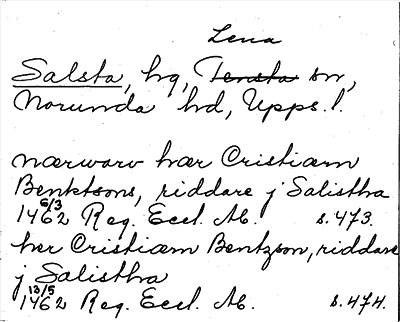 Lena
Salsta, hg, Tensta sn,
Norunda hd, Upps. l.
närwaro hær Cristiærn
Benktsons, riddare j Salistha
6/3
1462 Reg. Eccl. Ab. s. 473.
her Cristiærn Bentzson, riddare
j Salistha
13/5
1462 Reg. Eccl. Ab. s. 474.